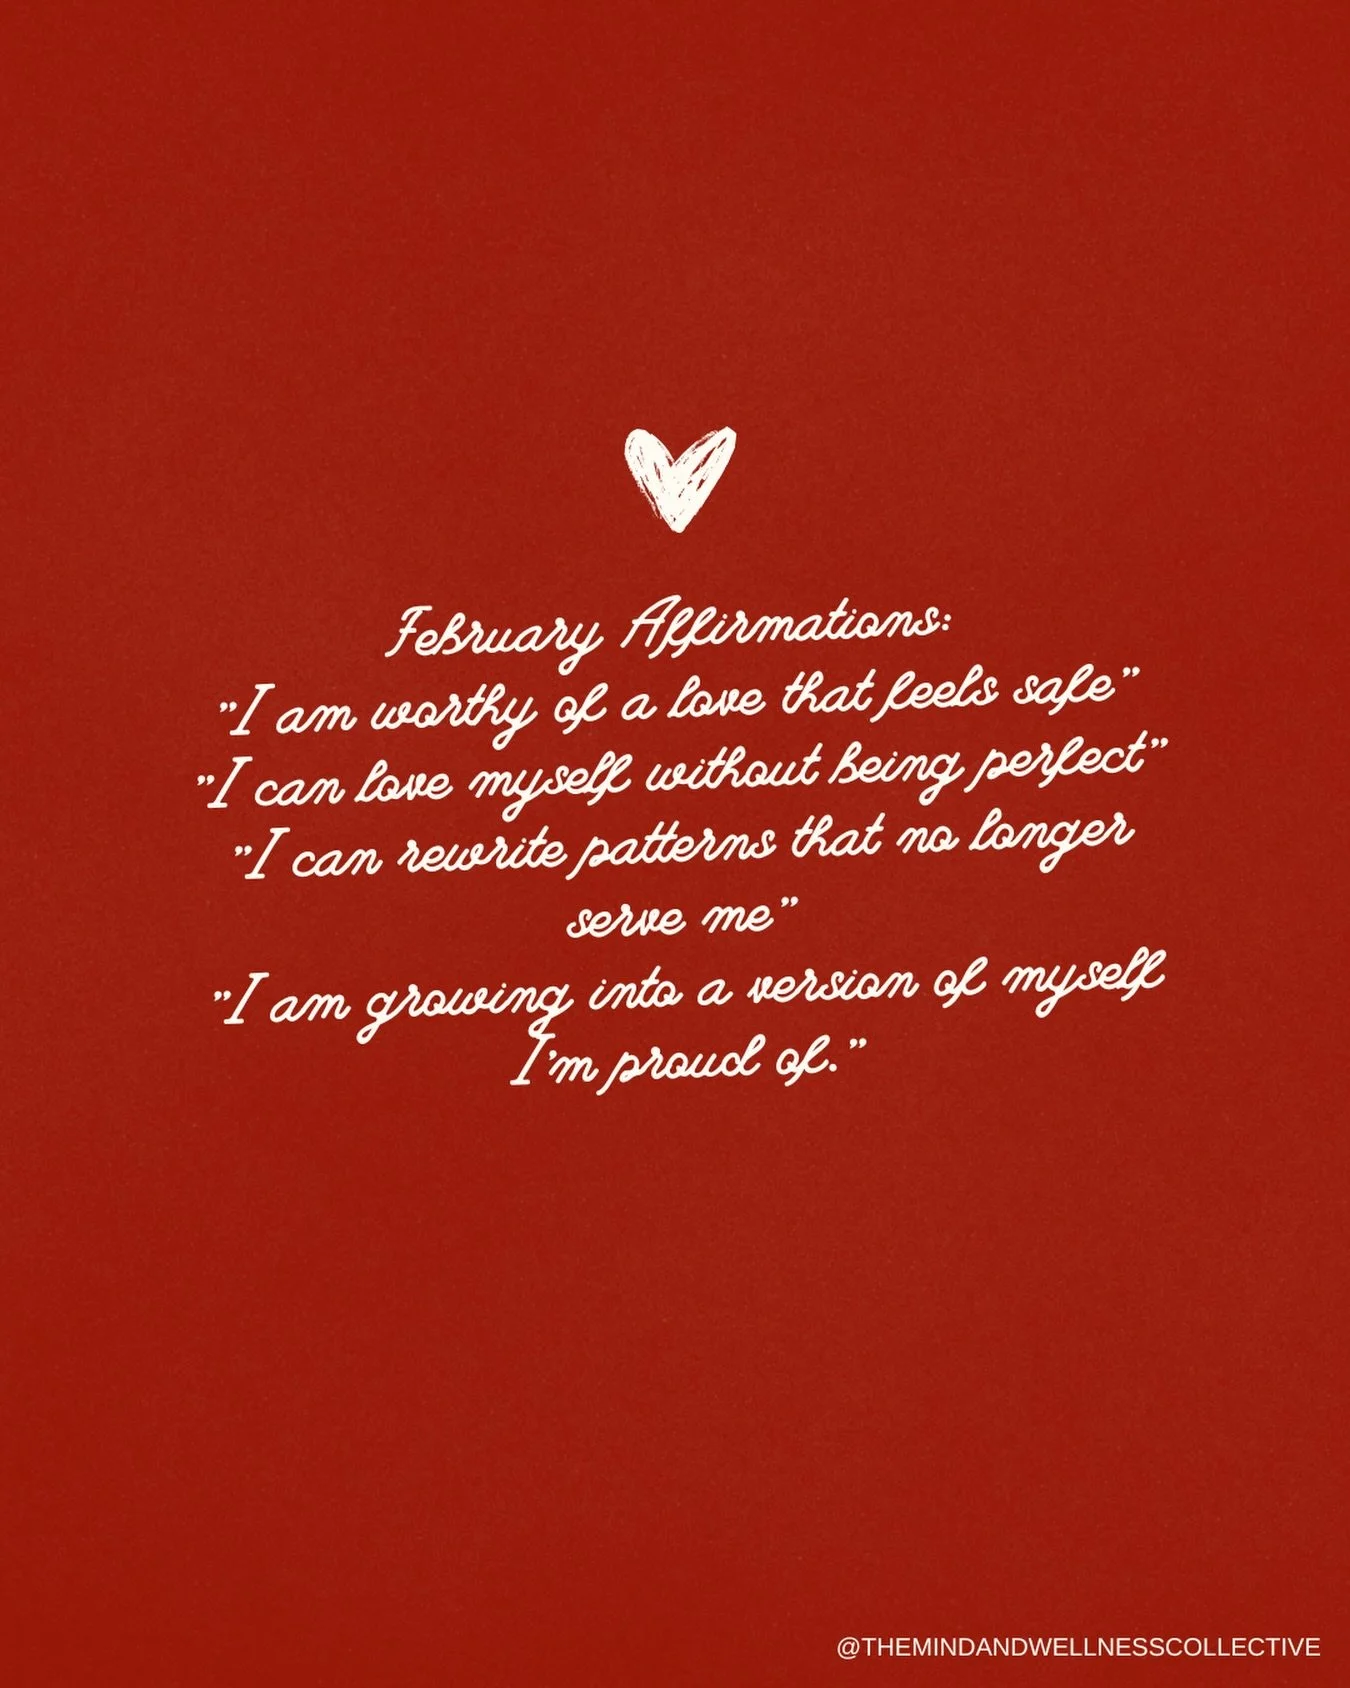 February Affirmations:
"I am worthy of a love that feels safe"
"I can love myself without being perfect"
"I can rewrite patterns that no longer
serve me"
"I am growing into a version of myself
I'm proud of."
@THEMINDANDWELLNESSCOLLECTIVE